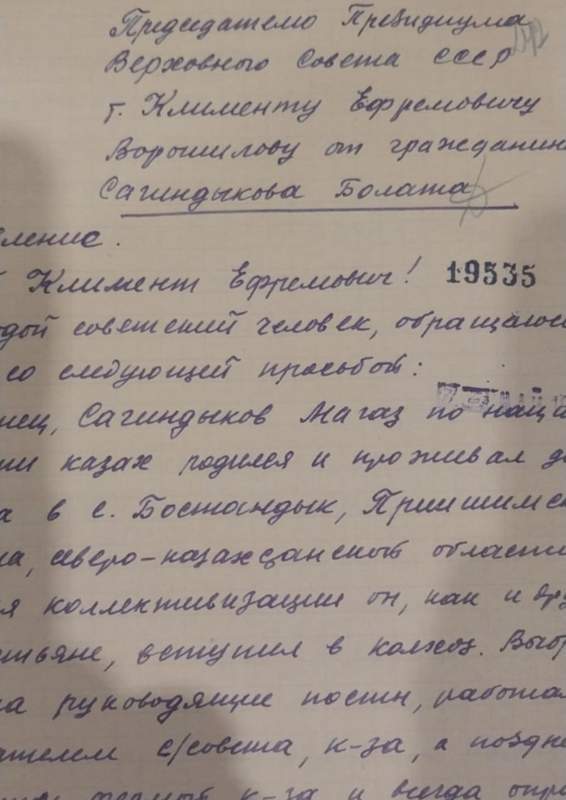 Председателю Президиума
Верховного Совета СССР
т. Клименту Ефремовичу
Ворошилову от гражданин
Сагиндыкова Болата
ление.
Климент Ефремович! 19535
одой советский человек, обращаюс
со следующей просьбой:
нец, Сагиндыков Магаз по наца
ии казах родился и проживал д
а в с. Бостандык, Пришимск
на, северо-казахстанской области
я коллективизации он, как и дру
стьяне, вступил в колхоз. Выбр
на руководящие посты, работал
ателем с/совета, к-за, а поздне
фермой к-за и всегда опра